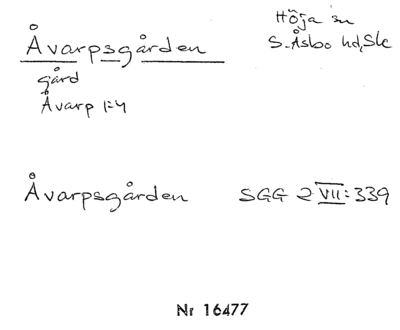 Åvarpsgården
Höja sn
S. Åsbo hd, Sk
gård
Åvarp 1:4
Åvarpsgården SGG 2 VII:339
Nr 16477